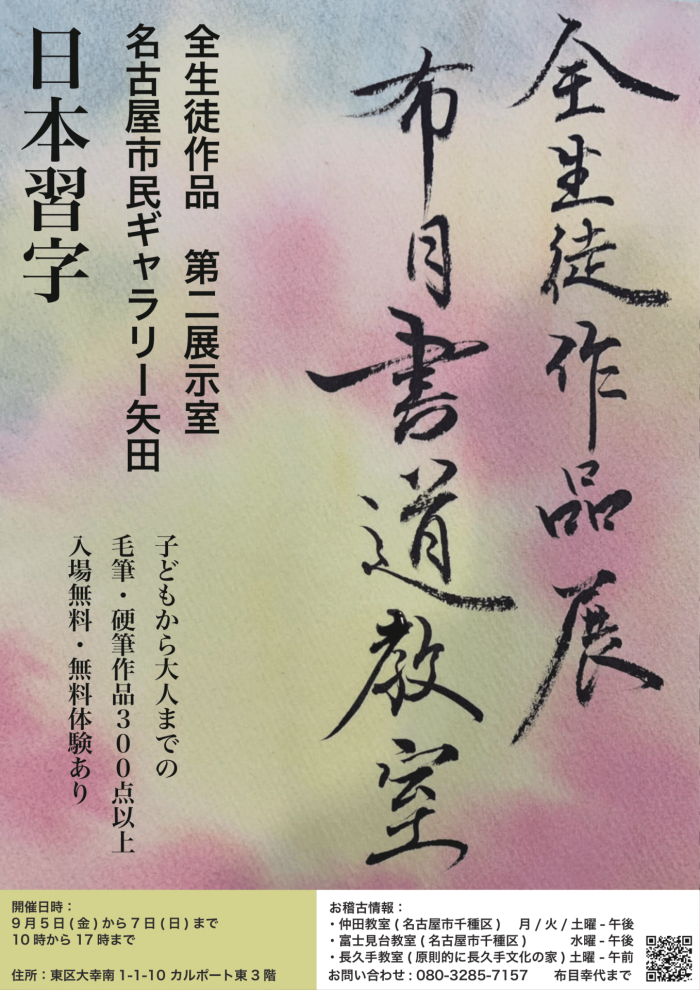 全生徒作品展
布目書道教室
全生徒作品　第二展示室
名古屋市民ギャラリー矢田
日本習字
子どもから大人までの
毛筆・硬筆作品３００点以上
入場無料・無料体験あり
開催日時：
9月5日(金)から7日(日)まで
10時から17時まで
住所：東区大幸南1-1-10 カルポート東3階
お稽古情報：
・仲田教室(名古屋市千種区)　月/火/土曜-午後
・富士見台教室(名古屋市千種区)　水曜-午後
・長久手教室(原則的に長久手文化の家)土曜-午前
お問い合わせ：080-3285-7157　布目幸代まで